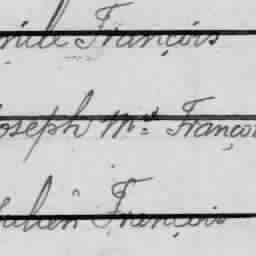 mile François
Joseph Mie Françoi
Julien François